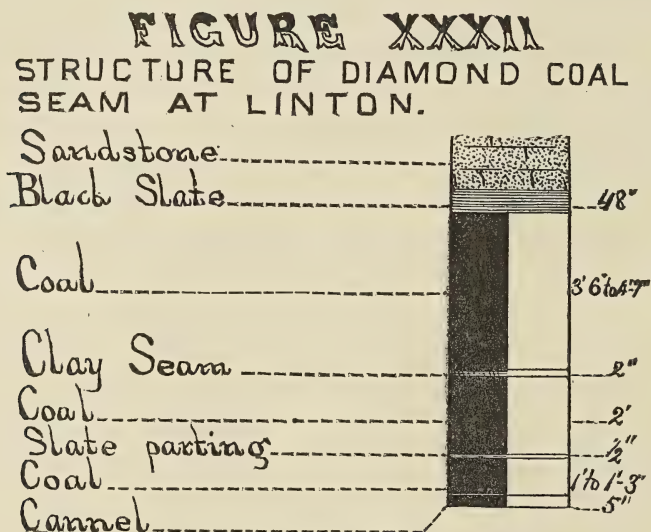 FIGURE XXXII
STRUCTURE OF DIAMOND COAL
SEAM AT LINTON.
Sandstone
Black Slate 48"
Coal 3' 6" to 4'-7"
Clay Seam 2"
Coal 2'
Slate parting ½"
Coal 1' to 1'-3"
Cannel 5"